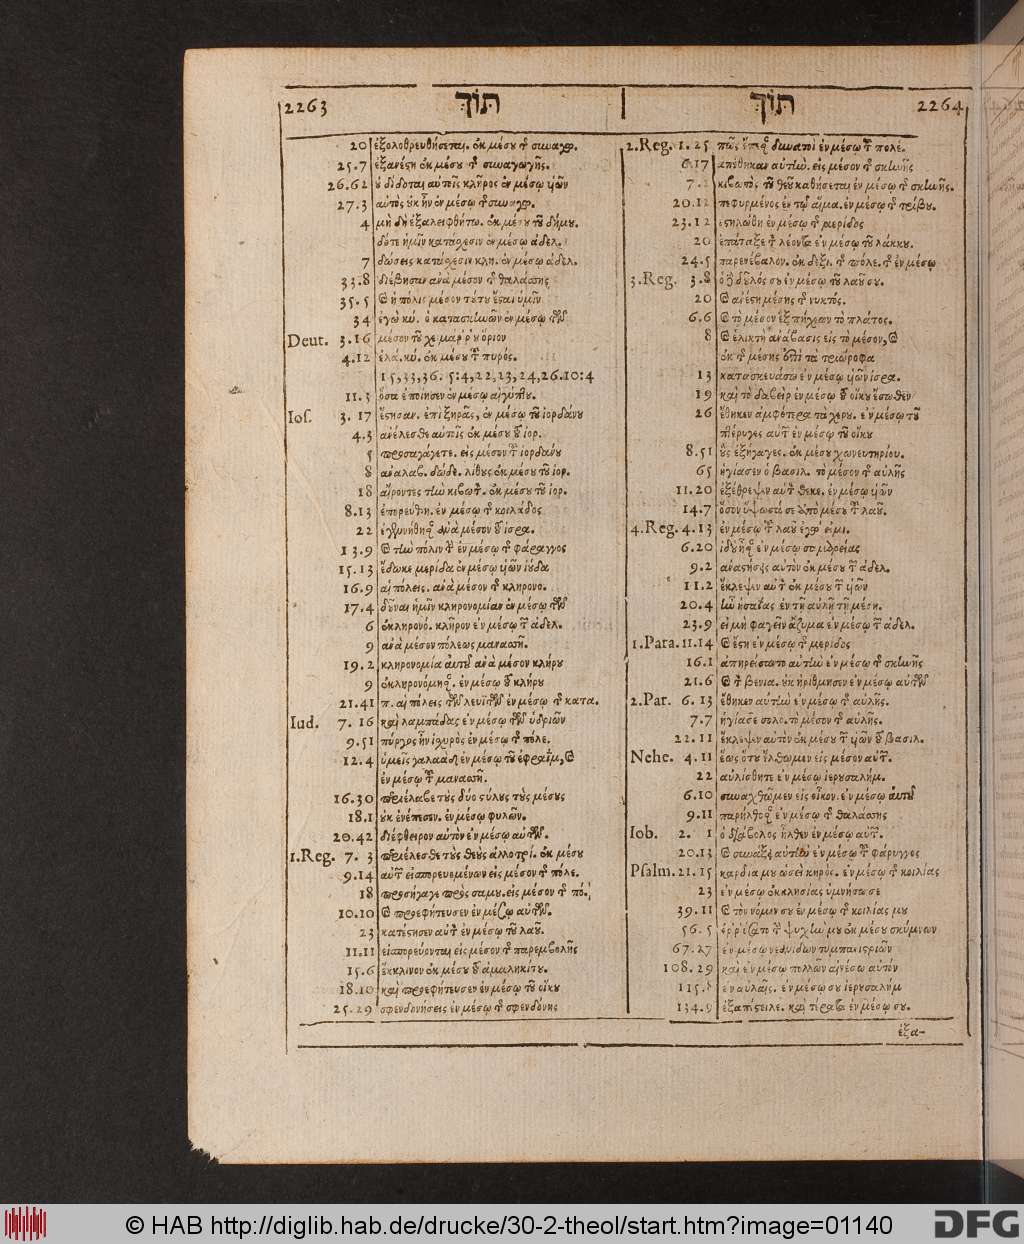 2263 תּוֹךְ | תּוֹךְ 2264
20 ἐξολοθρευθήσεται. ἐκ μέσου τῆς συναγω.
25.7 ἐξανέστη ἐκ μέσου τῆς συναγωγῆς.
26.62 οὐ δίδοται αὐτοῖς κλῆρος ἐν μέσῳ υἱῶν
27.3 αὐτὸς οὐκ ἦν ἐν μέσῳ τῆς συναγω.
4 μὴ δὴ ἐξαλειφθήτω. ἐκ μέσου τοῦ δήμου.
δότε ἡμῖν κατάσχεσιν ἐν μέσῳ ἀδελ.
7 δώσεις κατάσχεσιν κλη. ἐν μέσῳ ἀδελ.
33.8 διέβησαν ἀνὰ μέσον τῆς θαλάσσης
35.5 καὶ ἡ πόλις μέσον τούτου ἔσται ὑμῖν
34 ἐγὼ κύ. ὁ κατασκηνῶν ἐν μέσῳ τῶν
Deut. 3.16 μέσον τοῦ χειμάρρου ὅριον
4.12 ἐλά. κύ. ἐκ μέσου τοῦ πυρός.
15,33,36. 5:4,22,23,24,26.10:4
11.3 ὅσα ἐποίησεν ἐν μέσῳ αἰγύπτου.
Ios. 3.17 ἔστησαν. ἐπὶ ξηρᾶς, ἐν μέσῳ τοῦ ἰορδάνου
4.3 ἀνέλεσθε αὐτοῖς ἐκ μέσου τοῦ ἰορ.
5 προσαγάγετε. εἰς μέσον τοῦ ἰορδάνου
8 ἀναλαβ. δώδε. λίθους ἐκ μέσου τοῦ ἰορ.
18 αἴροντες τὴν κιβωτ. ἐκ μέσου τοῦ ἰορ.
8.13 ἐπορεύθη. ἐν μέσῳ τῆς κοιλάδος
22 ἐγενήθησαν ἀνὰ μέσον τοῦ ἰσρα.
13.9 καὶ τὴν πόλιν τὴν ἐν μέσῳ τῆς φάραγγος
15.13 ἔδωκε μερίδα ἐν μέσῳ υἱῶν ἰούδα
16.9 αἱ πόλεις. ἀνὰ μέσον τῆς κληρονο.
17.4 δοῦναι ἡμῖν κληρονομίαν ἐν μέσῳ τῶν
6 ἐκληρονό. κλῆρον ἐν μέσῳ τῶν ἀδελ.
9 ἀνὰ μέσον πόλεως μανασσῆ.
19.2 κληρονομία αὐτῶν ἀνὰ μέσον κλήρου
9 ἐκληρονόμησ. ἐν μέσῳ τοῦ κλήρου
21.41 π. αἱ πόλεις τῶν λευϊτῶν ἐν μέσῳ τῆς κατα.
Iud. 7.16 καὶ λαμπάδας ἐν μέσῳ τῶν ὑδριῶν
9.51 πύργος ἦν ἰσχυρὸς ἐν μέσῳ τῆς πόλε.
12.4 ὑμεῖς γαλαὰδ ἐν μέσῳ τοῦ ἐφραῒμ, καὶ
ἐν μέσῳ τοῦ μανασσῆ.
16.30 περιέλαβε τοὺς δύο στύλους τοὺς μέσους
18.1 οὐκ ἐνέπεσεν. ἐν μέσῳ φυλῶν.
20.42 διέφθειρον αὐτὸν ἐν μέσῳ αὐτῶν.
1.Reg. 7.3 περιέλεσθε τοὺς θεοὺς ἀλλοτρί. ἐκ μέσου
9.14 αὐτῶν εἰσπορευομένων εἰς μέσον τῆς πόλε.
18 προσήγαγε πρὸς σαμου. εἰς μέσον τῆς πό.
10.10 καὶ προεφήτευσεν ἐν μέσῳ αὐτῶν.
23 κατέστησεν αὐτὸν ἐν μέσῳ τοῦ λαοῦ.
11.11 εἰσπορεύονται εἰς μέσον τῆς παρεμβολῆς
15.6 ἔκκλινον ἐκ μέσου τοῦ ἀμαληκίτου.
18.10 καὶ προεφήτευσεν ἐν μέσῳ τοῦ οἴκου
25.29 σφενδονήσεις ἐν μέσῳ τῆς σφενδόνης
2.Reg. 1.25 πῶς ἔπεσον δυνατοὶ ἐν μέσῳ τοῦ πολέ.
6.17 ἀπέθηκαν αὐτὴν. εἰς μέσον τῆς σκηνῆς
7.2 κιβωτὸς τοῦ θεοῦ κάθηται ἐν μέσῳ τῆς σκηνῆς.
20.12 πεφυρμένος ἐν τῷ αἵμα. ἐν μέσῳ τῆς τρίβου.
23.12 ἐστηλώθη ἐν μέσῳ τῆς μερίδος
20 ἐπάταξε τὸν λέοντα ἐν μέσῳ τοῦ λάκκου.
24.5 παρενέβαλον. ἐκ δεξι. τῆς πόλε. τῆς ἐν μέσῳ
3.Reg. 3.8 ὁ δοῦλός σου ἐν μέσῳ τοῦ λαοῦ σου.
20 καὶ ἀνέστη μέσης τῆς νυκτός.
6.6 καὶ τὸ μέσον ἓξ πήχεων τὸ πλάτος.
8 καὶ ἑλικτὴ ἀνάβασις εἰς τὸ μέσον, καὶ
ἐκ τῆς μέσης ἐπὶ τὰ τριώροφα
13 κατασκευάσω ἐν μέσῳ υἱῶν ἰσρα.
19 καὶ τὸ δαβεὶρ ἐν μέσῳ τοῦ οἴκου ἔσωθεν
26 ἔθηκεν ἀμφότερα τὰ χερου. ἐν μέσῳ τοῦ
πτέρυγες αὐτῶν ἐν μέσῳ τοῦ οἴκου
8.51 οὓς ἐξήγαγες. ἐκ μέσου χωνευτηρίου.
65 ἡγίασεν ὁ βασιλ. τὸ μέσον τῆς αὐλῆς
11.20 ἐξέθρεψεν αὐτὸν θεκε. ἐν μέσῳ υἱῶν
14.7 ὅσον ὕψωσά σε ἀπὸ μέσου τοῦ λαοῦ.
4.Reg. 4.13 ἐν μέσῳ τοῦ λαοῦ ἐγώ εἰμι.
6.20 ἰδοὺ ἦσαν ἐν μέσῳ σαμαρείας
9.2 ἀναστήσεις αὐτὸν ἐκ μέσου τῶν ἀδελ.
11.2 ἔκλεψεν αὐτὸν ἐκ μέσου τῶν υἱῶν
20.4 ἦν ἡσαΐας ἐν τῇ αὐλῇ τῇ μέσῃ.
23.9 εἰ μὴ φαγεῖν ἄζυμα ἐν μέσῳ τῶν ἀδελ.
1.Para. 11.14 καὶ ἔστη ἐν μέσῳ τῆς μερίδος
16.1 ἀπηρείσαντο αὐτὴν ἐν μέσῳ τῆς σκηνῆς
21.6 καὶ τὸν βενια. οὐκ ἠρίθμησεν ἐν μέσῳ αὐτῶν
2.Par. 6.13 ἔθηκεν αὐτὴν ἐν μέσῳ τῆς αὐλῆς.
7.7 ἡγίασε σολο. τὸ μέσον τῆς αὐλῆς.
22.11 ἔκλεψεν αὐτὸν ἐκ μέσου τῶν υἱῶν τοῦ βασιλ.
Nehe. 4.11 ἕως ὅτου ἔλθωμεν εἰς μέσον αὐτῶν.
22 αὐλίσθητε ἐν μέσῳ ἱερουσαλήμ.
6.10 συναχθῶμεν εἰς οἶκον. ἐν μέσῳ αὐτοῦ
9.11 παρήλθοσαν ἐν μέσῳ τῆς θαλάσσης
Iob. 2.1 ὁ διάβολος ἦλθεν ἐν μέσῳ αὐτῶν.
20.13 καὶ συνάξει αὐτὴν ἐν μέσῳ τοῦ φάρυγγος
Psalm. 21.15 καρδία μου ὡσεὶ κηρὸς. ἐν μέσῳ τῆς κοιλίας
23 ἐν μέσῳ ἐκκλησίας ὑμνήσω σε
39.11 καὶ τὸν νόμον σου ἐν μέσῳ τῆς κοιλίας μου
56.5 ἐρρύσατο τὴν ψυχήν μου ἐκ μέσου σκύμνων
67.27 ἐν μέσῳ νεανίδων τυμπανιστριῶν
108.29 καὶ ἐν μέσῳ πολλῶν αἰνέσω αὐτόν
115.8 ἐν αὐλαῖς. ἐν μέσῳ σου ἱερουσαλήμ
134.9 ἐξαπέστειλε. καὶ τέρατα ἐν μέσῳ σου.
ἐξα-
© HAB http://diglib.hab.de/drucke/30-2-theol/start.htm?image=01140
DFG